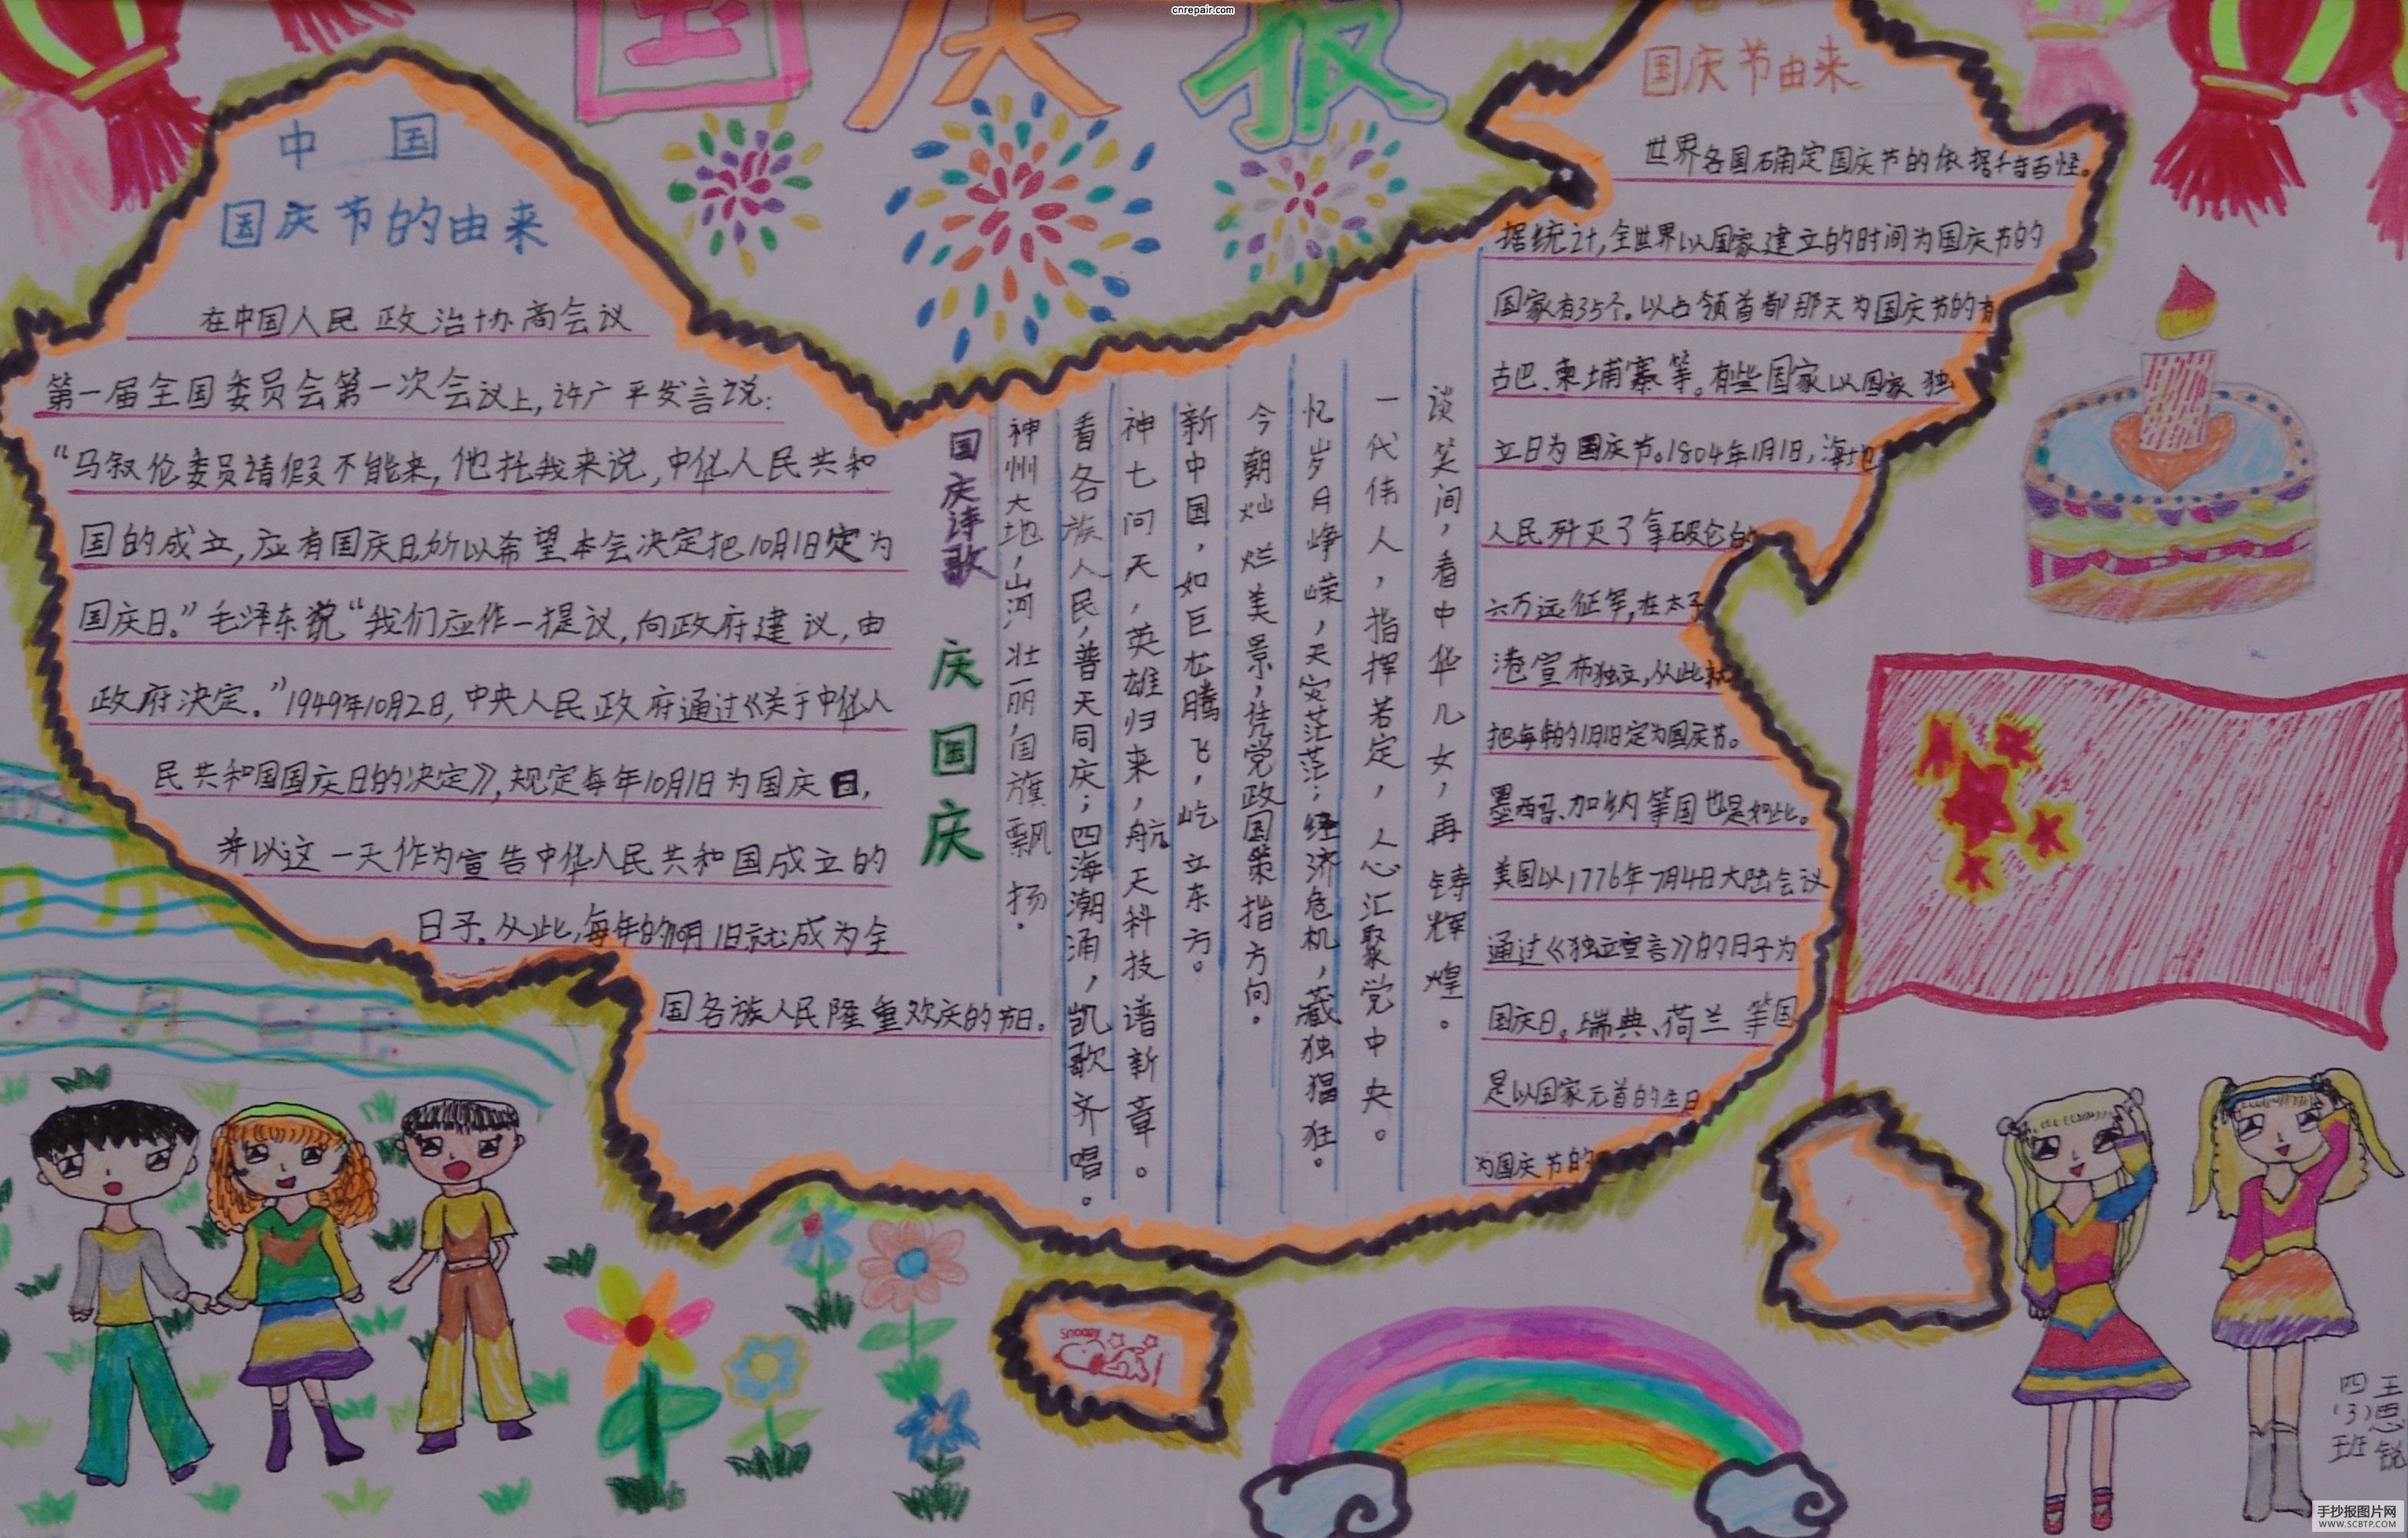 cnrepair.com
国庆报
中国
国庆节的由来
在中国人民政治协商会议
第一届全国委员会第一次会议上,许广平发言说:
“马叙伦委员请假不能来,他托我来说,中华人民共和
国的成立,应有国庆日,所以希望本会决定把10月1日定为
国庆日。”毛泽东说“我们应作一提议,向政府建议,由
政府决定。”1949年10月2日,中央人民政府通过《关于中华人
民共和国国庆日的决定》,规定每年10月1日为国庆日,
并以这一天作为宣告中华人民共和国成立的
日子。从此,每年的10月1日就成为全
国各族人民隆重欢庆的节日。
国庆诗歌 庆国庆
神州大地,山河壮丽,国旗飘扬.
看各族人民,普天同庆;四海潮涌,凯歌齐唱。
神七问天,英雄归来,航天科技谱新章。
新中国,如巨龙腾飞,屹立东方。
今朝灿烂美景,凭党政国策指方向.
忆岁月峥嵘,天灾茫茫;经济危机,藏独猖狂。
一代伟人,指挥若定,人心汇聚党中央。
谈笑间,看中华儿女,再铸辉煌。
国庆节由来
世界各国确定国庆节的依据千奇百怪。
据统计,全世界以国家建立的时间为国庆节的
国家有35个。以占领首都那天为国庆节的有
古巴、柬埔寨等。有些国家以国家独
立日为国庆节。1804年1月1日,海地
人民歼灭了拿破仑的
六万远征军,在太子
港宣布独立,从此就
把每年的1月1日定为国庆节。
墨西哥、加纳等国也是如此。
美国以1776年7月4日大陆会议
通过《独立宣言》的日子为
国庆日。瑞典、荷兰等国
是以国家元首的生日
为国庆节的
snoopy
四(3)班
王思锐
手抄报图片网
WWW.SCBTP.COM